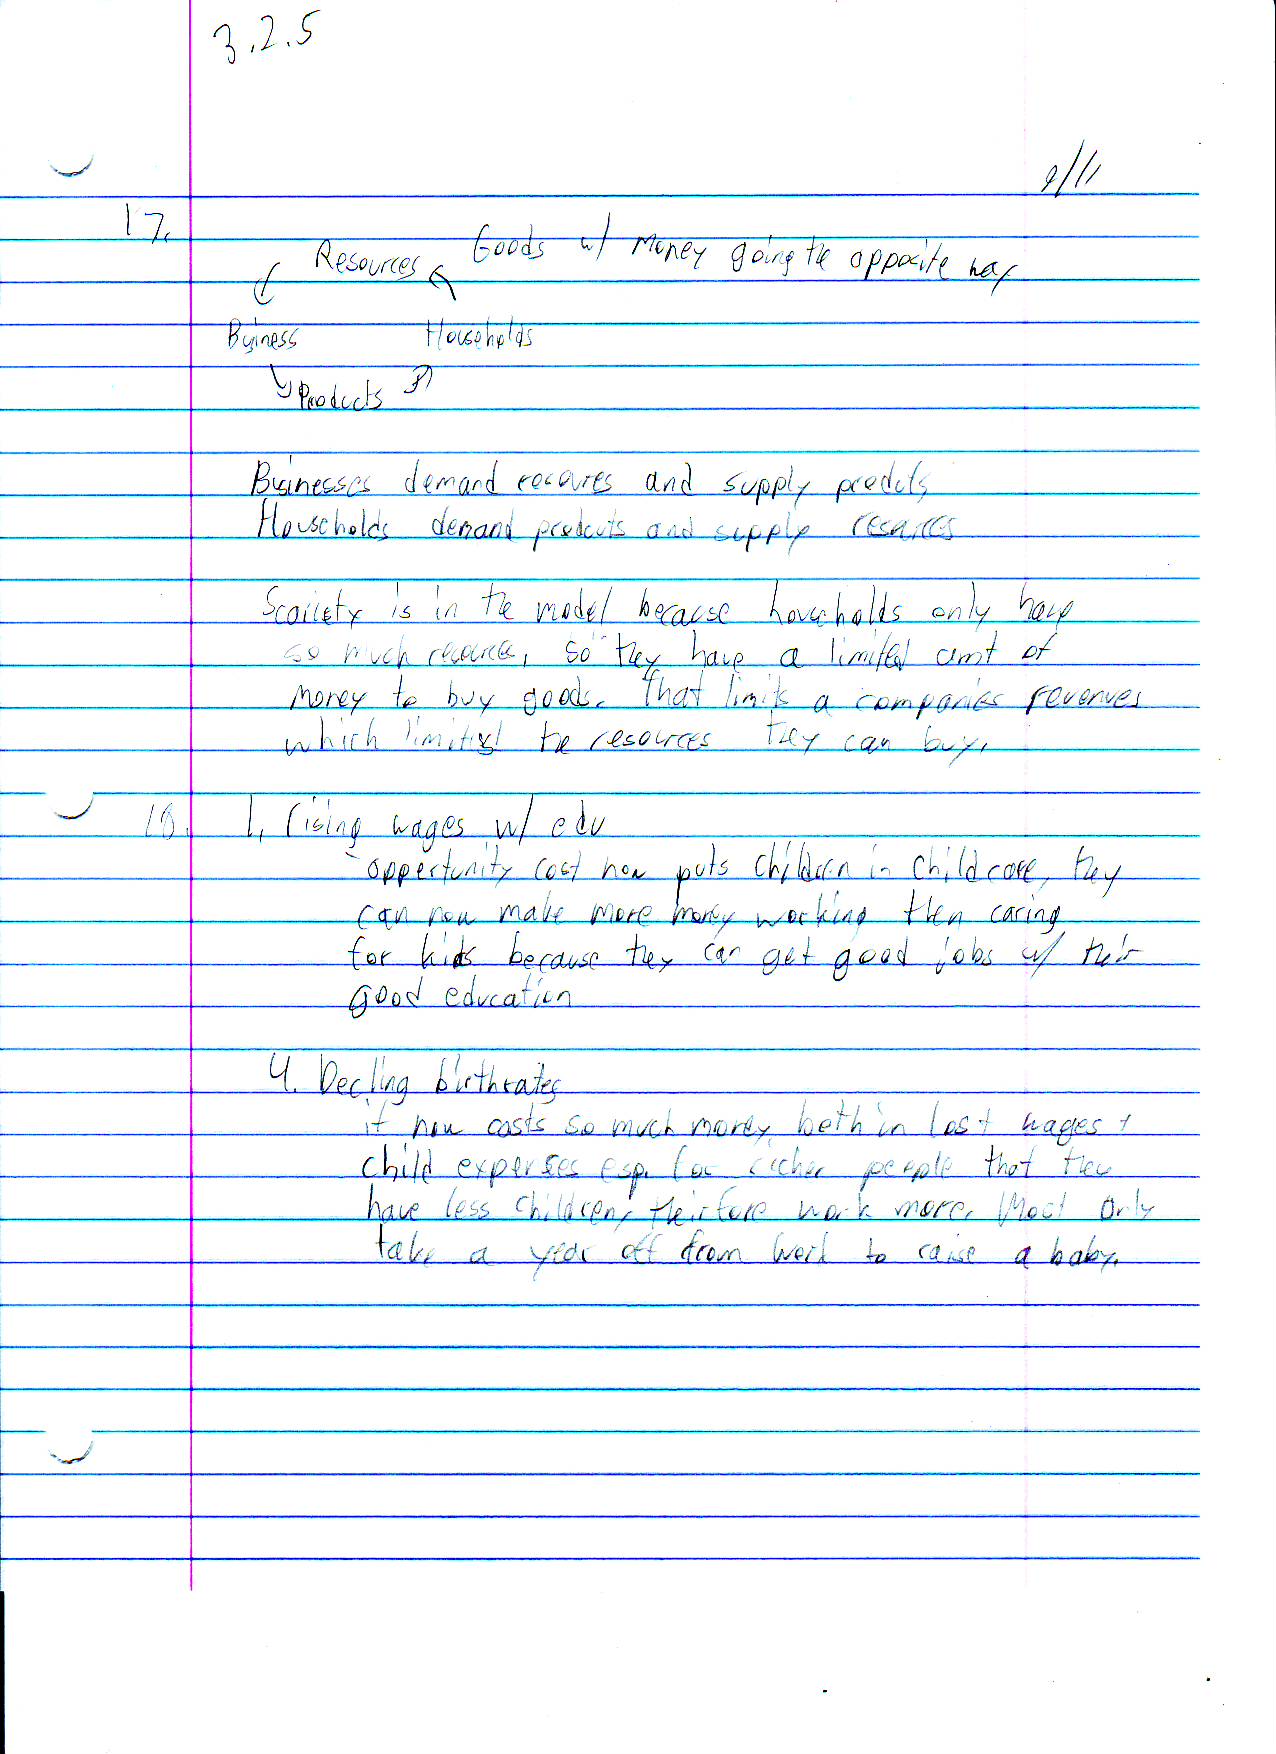 3.2.5
9/11
17.
Goods w/ money going the opposite way
Resources
Business Households
Products
Businesses demand resoures and supply products
Households demand products and supply resources
Scariety is in the model because households only have
so much resources, so they have a limited amt of
money to buy goods. That limits a companies revenues
which limits the resources they can buy.
18. 1. rising wages w/ edu
-opportunity cost now puts children in childcare, they
can now make more money working then caring
for kids because they can get good jobs w/ their
good education
4. Decling birthrates
it now costs so much money, both in lost wages +
child expenses esp. for richer people that they
have less children, theirfore work more. Most only
take a year off from work to raise a baby.